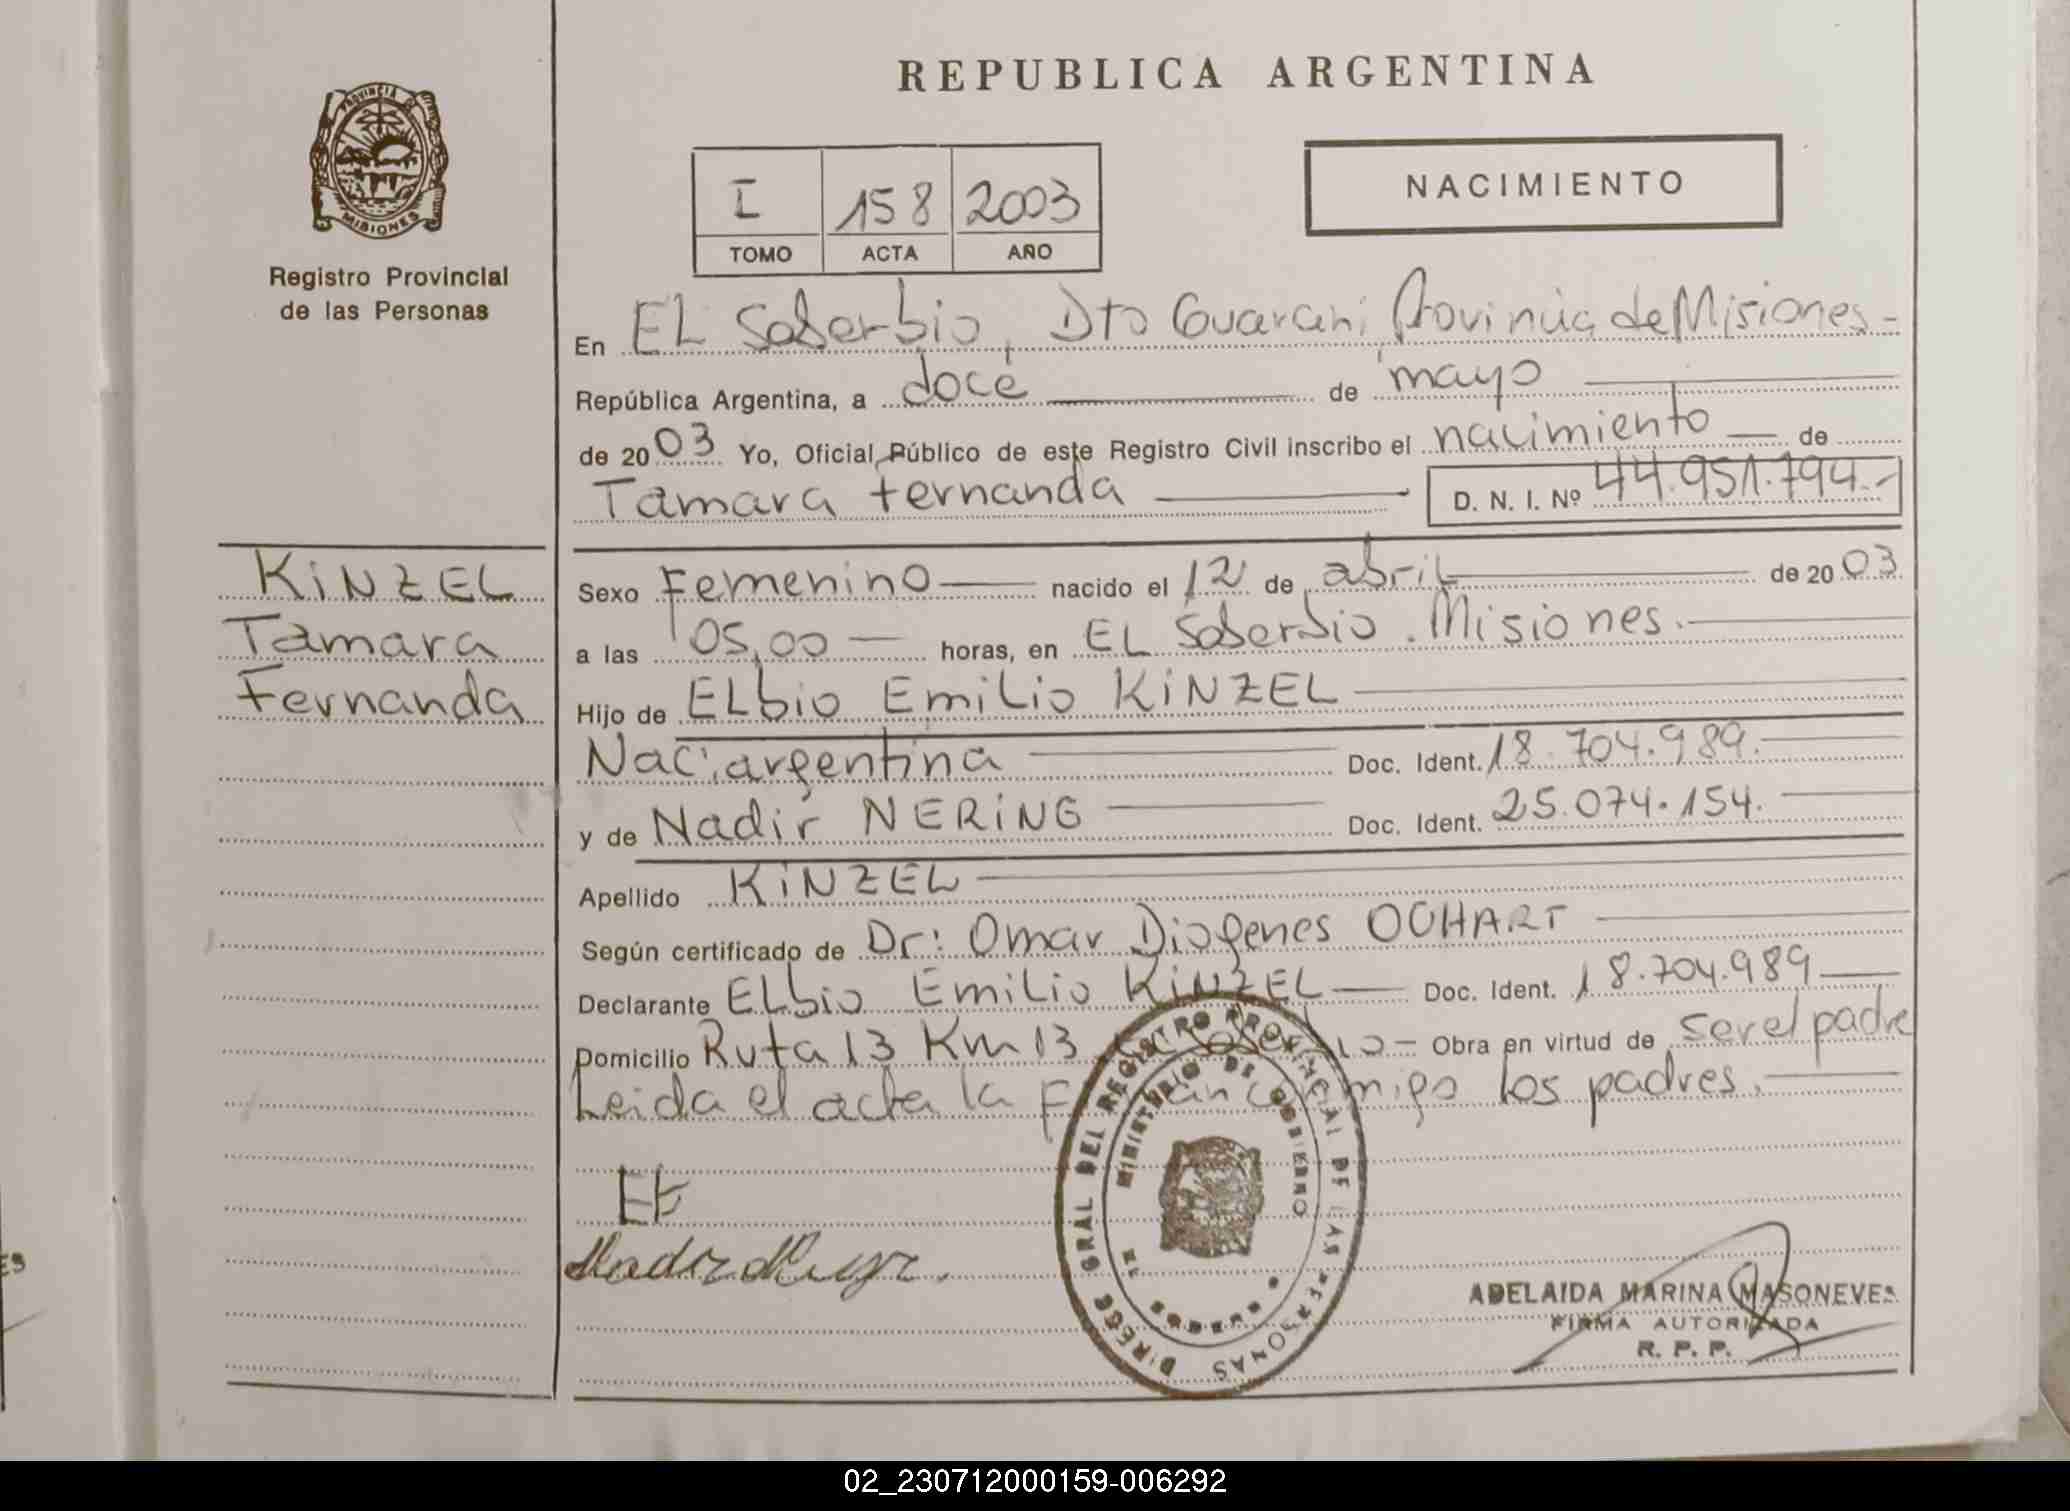 REPUBLICA ARGENTINA
PROVINCIA DE
MISIONES
Registro Provincial
de las Personas
I 158 2003
TOMO ACTA AÑO
NACIMIENTO
En EL Soberbio, Dto Guarani, Provincia de Misiones-
República Argentina, a doce de mayo
de 2003 Yo, Oficial Público de este Registro Civil inscribo el nacimiento de
Tamara Fernanda D. N. I. Nº 44.951.794.-
KiNZEL
Tamara
Fernanda
Sexo Femenino nacido el 12 de abril de 2003
a las 05,00 horas, en EL Soberbio. Misiones.
Hijo de ELbio Emilio KiNZEL
Nac: argentina Doc. Ident. 18.704.989.
y de Nadir NERiNG Doc. Ident. 25.074.154.
Apellido KiNZEL
Según certificado de Dr: Omar Diogenes OUHART
Declarante ELbio Emilio KiNZEL Doc. Ident. 18.704.989
Domicilio Ruta 13 Km 13 Soberbio- Obra en virtud de ser el padre
Leida el acta la conmigo los padres.
EK
DIRECC GRAL DEL REGISTRO PROVINCIAL DE LAS PERSONAS
MINISTERIO DE GOBIERNO
ADELAIDA MARINA MASONEVES
FIRMA AUTORIZADA
R. P. P.
02_230712000159-006292